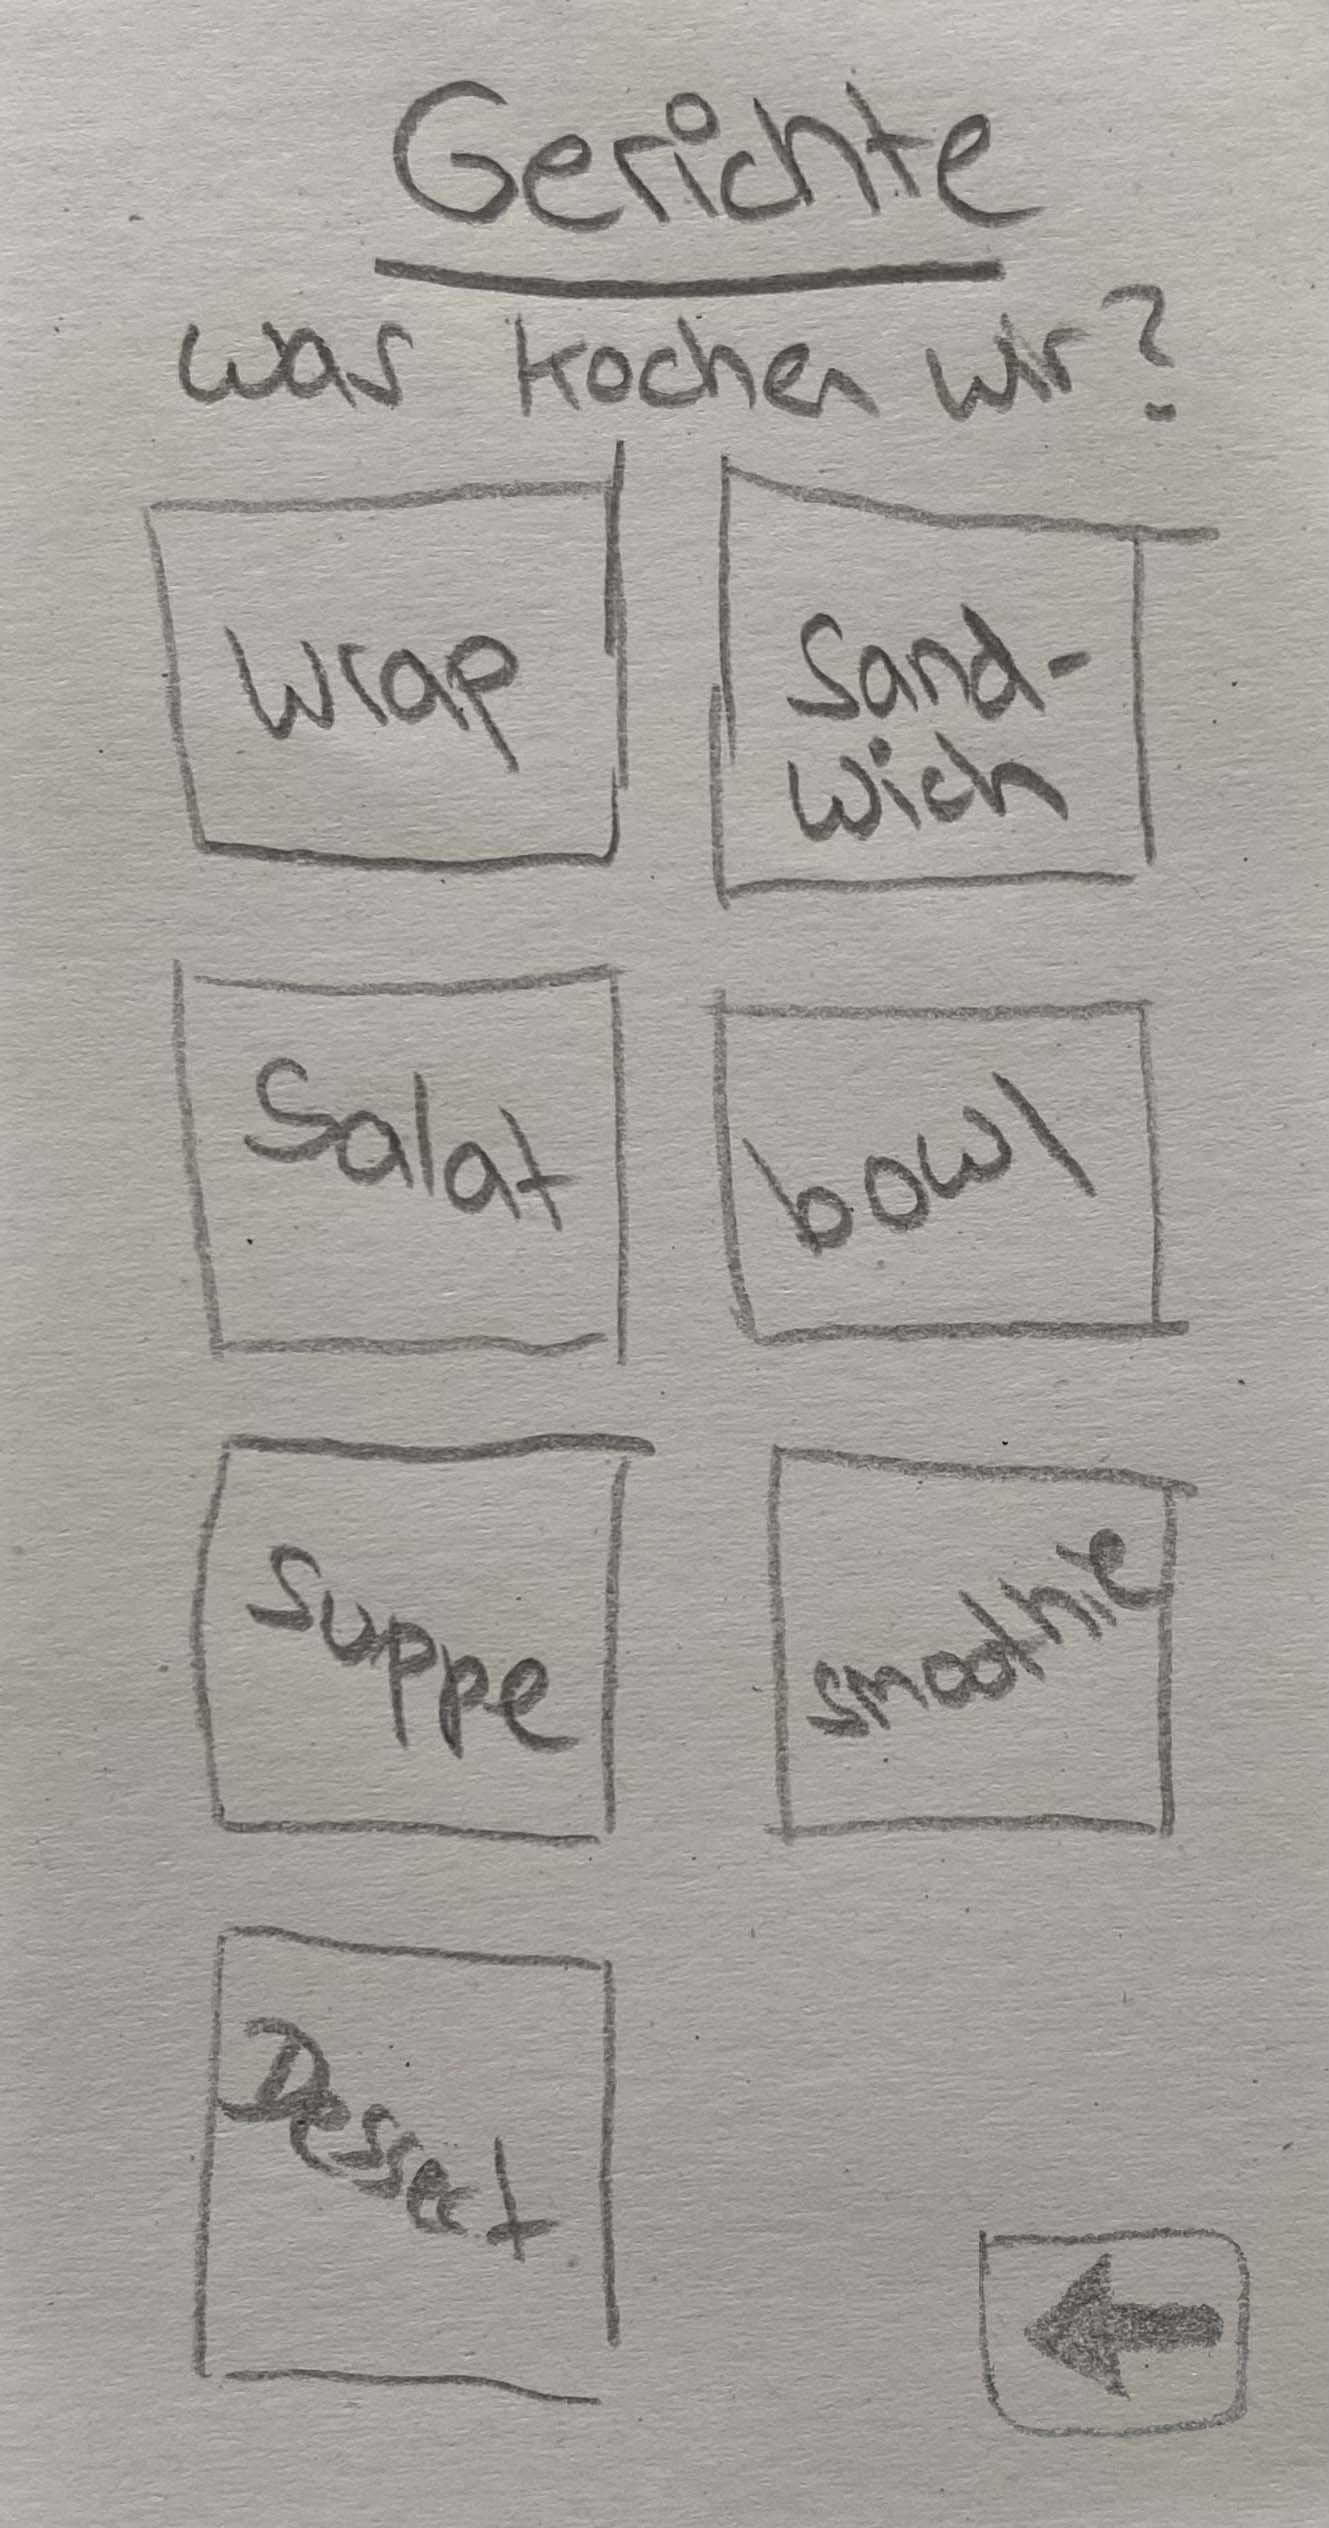 Gerichte
was kochen wir?
Wrap
Sand-
wich
Salat
bowl
Suppe
smoothie
Dessert